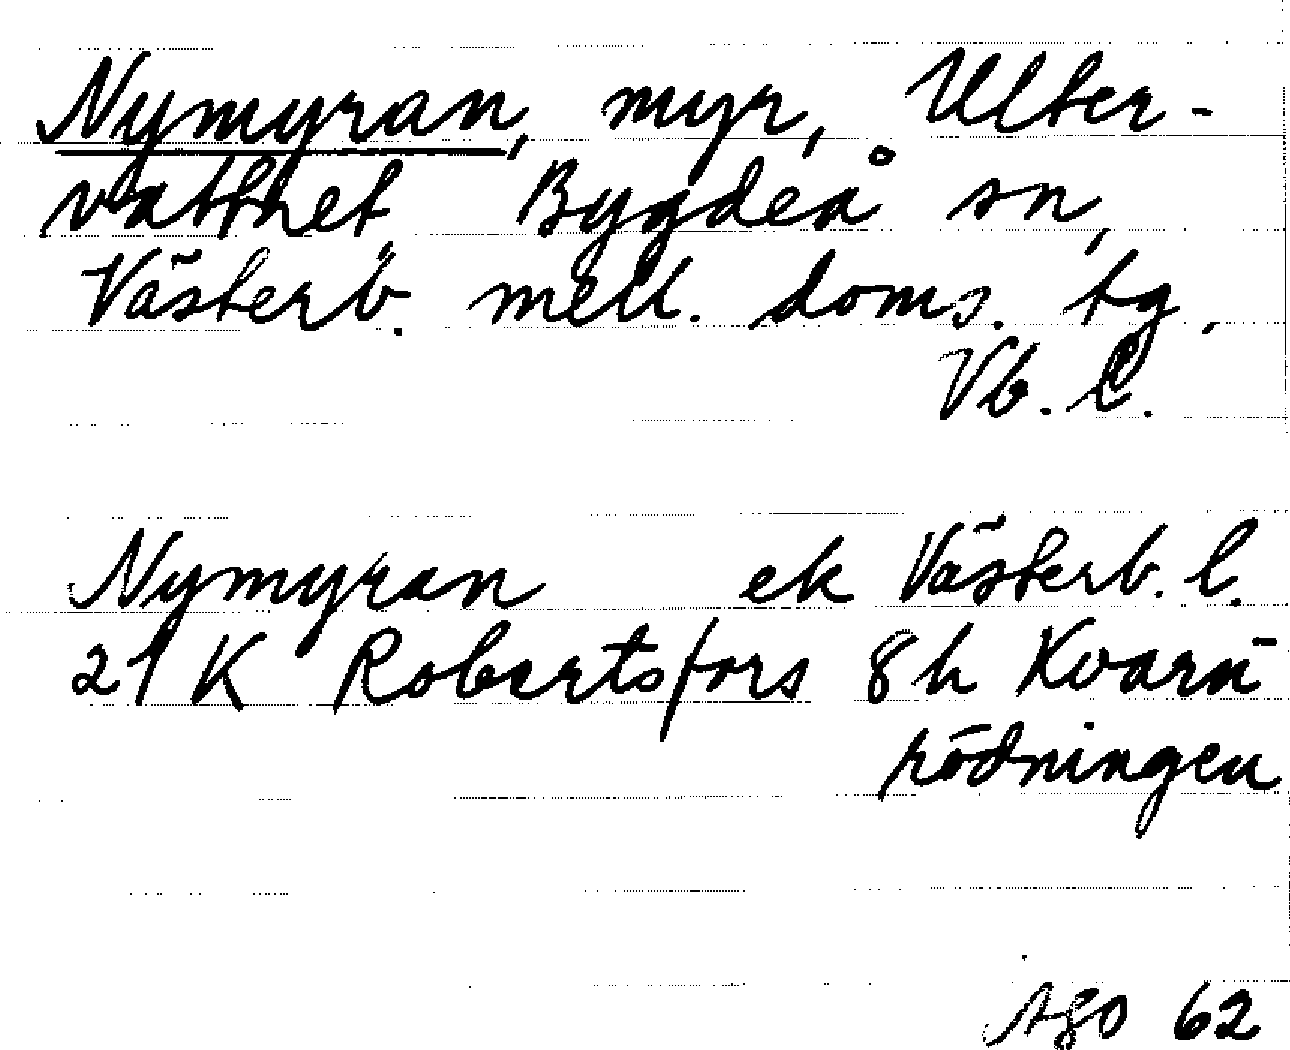 Nymyran, myr, Ulter-
vattnet, Bygdeå sn,
Västerb. mell. doms. tg,
Vb. l.
Nymyran ek Västerb. l.
21 K Robertsfors 8h Kvarn
rödningen
62